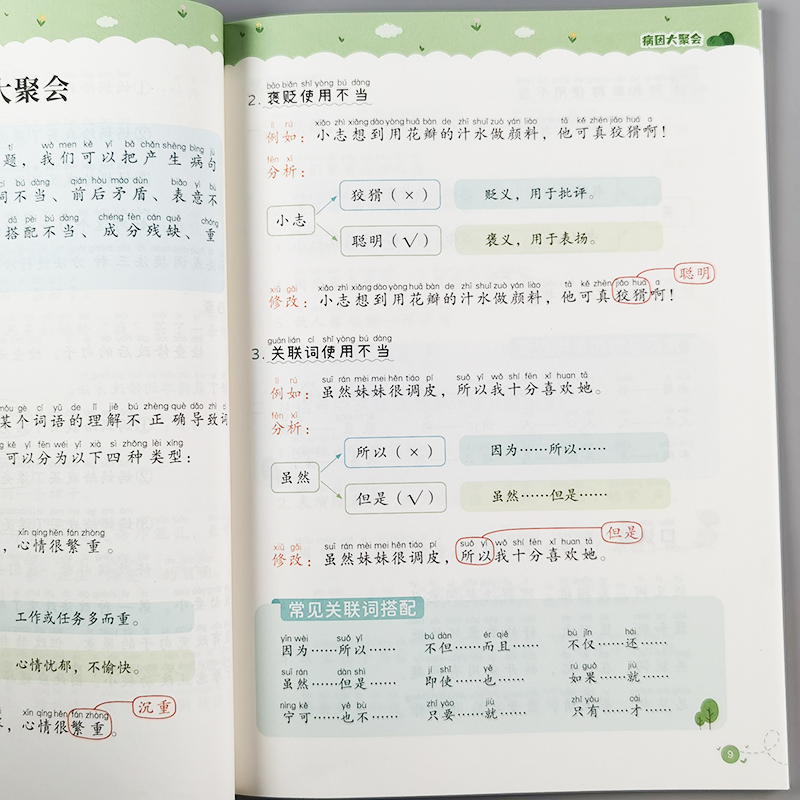 大聚会
tí wǒ men kě yǐ bǎ chǎn shēng bìng jù
题，我们可以把产生病句
cí bú dàng qián hòu máo dùn biǎo yì bù
词不当、前后矛盾、表意不
dā pèi bú dàng chéng fèn cán quē chóng
搭配不当、成分残缺、重
mǒu gè cí yǔ de lǐ jiě bú zhèng què dǎo zhì
某个词语的理解不正确导致词
kě yǐ fēn wéi yǐ xià sì zhǒng lèi xíng
可以分为以下四种类型：
xīn qíng hěn fán zhòng
，心情很繁重。
工作或任务多而重。
心情忧郁，不愉快。
沉重
xīn qíng hěn fán zhòng
，心情很繁重。
病因大聚会
bāo biǎn shǐ yòng bú dàng
2. 褒贬使用不当
lì rú xiǎo zhì xiǎng dào yòng huā bàn de zhī shuǐ zuò yán liào tā kě zhēn jiǎo huá a
例如：小志想到用花瓣的汁水做颜料，他可真狡猾啊！
fēn xī
分析：
狡猾（×） 贬义，用于批评。
小志
聪明（√） 褒义，用于表扬。
聪明
xiū gǎi xiǎo zhì xiǎng dào yòng huā bàn de zhī shuǐ zuò yán liào tā kě zhēn jiǎo huá a
修改：小志想到用花瓣的汁水做颜料，他可真狡猾啊！
guān lián cí shǐ yòng bú dàng
3. 关联词使用不当
lì rú suī rán mèi mei hěn tiáo pí suǒ yǐ wǒ shí fēn xǐ huan tā
例如：虽然妹妹很调皮，所以我十分喜欢她。
fēn xī
分析：
所以（×） 因为……所以……
虽然
但是（√） 虽然……但是……
但是
xiū gǎi suī rán mèi mei hěn tiáo pí suǒ yǐ wǒ shí fēn xǐ huan tā
修改：虽然妹妹很调皮，所以我十分喜欢她。
常见关联词搭配
yīn wèi suǒ yǐ bú dàn ér qiě bù jǐn hái
因为……所以…… 不但……而且…… 不仅……还……
suī rán dàn shì jí shǐ yě rú guǒ jiù
虽然……但是…… 即使……也…… 如果……就……
nìng kě yě bù zhǐ yào jiù zhǐ yǒu cái
宁可……也不…… 只要……就…… 只有……才……
9